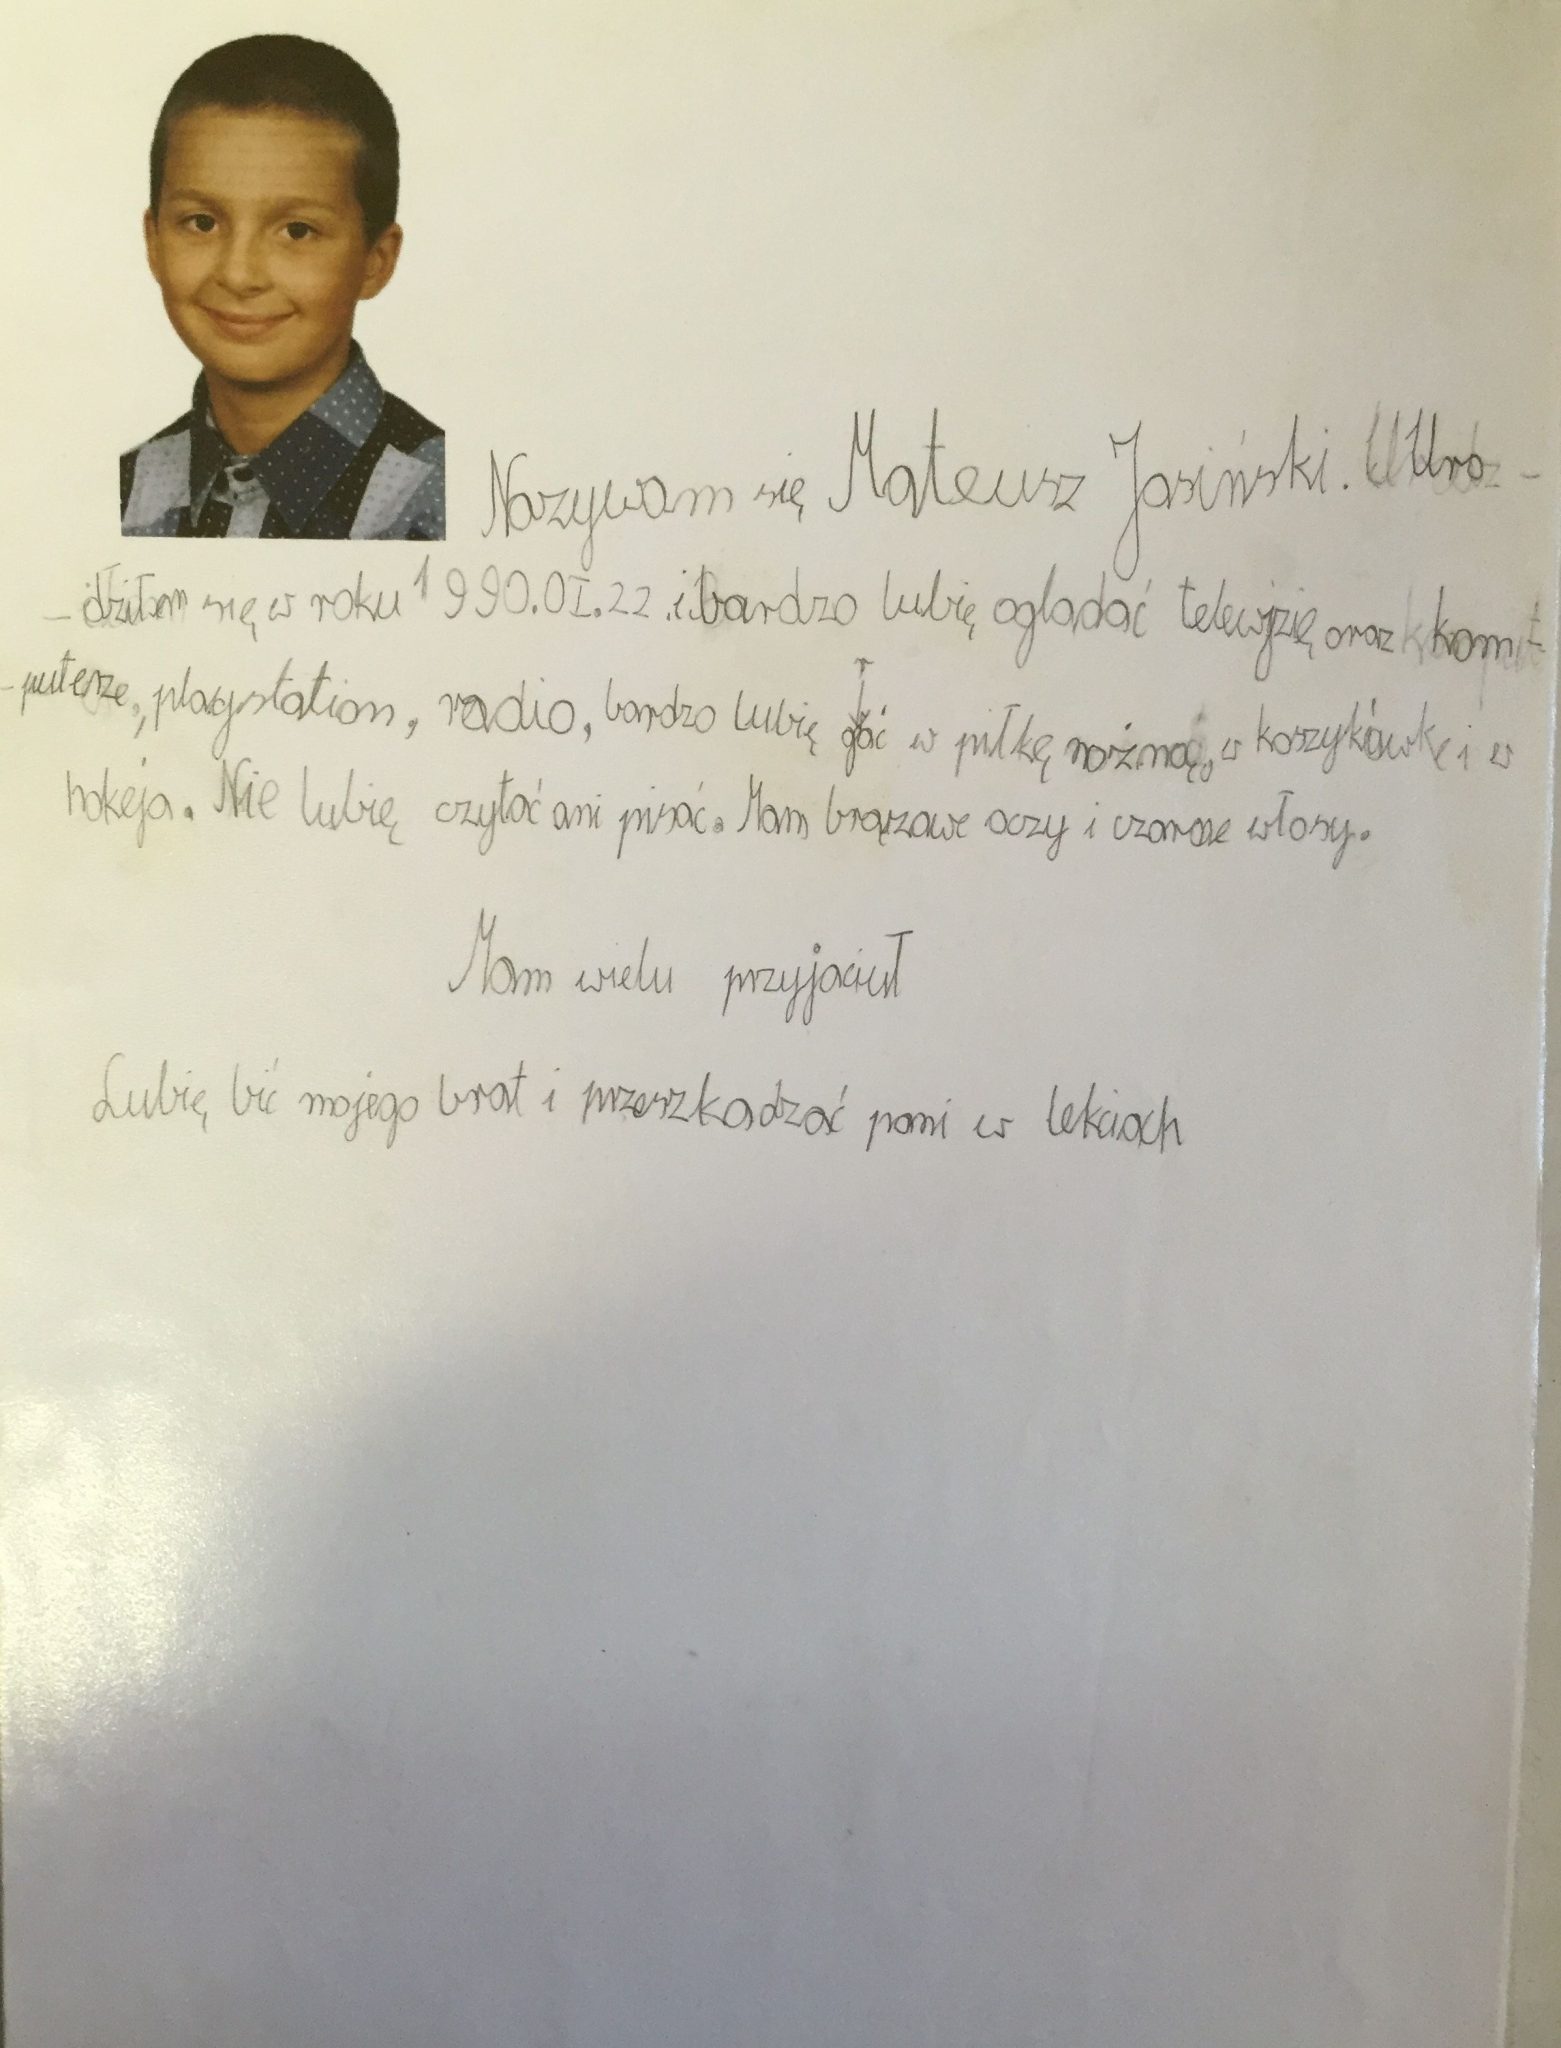 Nazywam się Mateusz Jasiński. Uro-
-dziłem się w roku 1990.01.22. i bardzo lubię oglądać telewizję oraz kom-
-puterze, playstation, radio, bardzo lubię grać w piłkę nożną, w koszykówkę i w
hokeja. Nie lubię czytać ani pisać. Mam brązowe oczy i czarne włosy.
Mam wielu przyjaciuł
Lubię bić mojego brat i przeszkadzać pani w lekciach